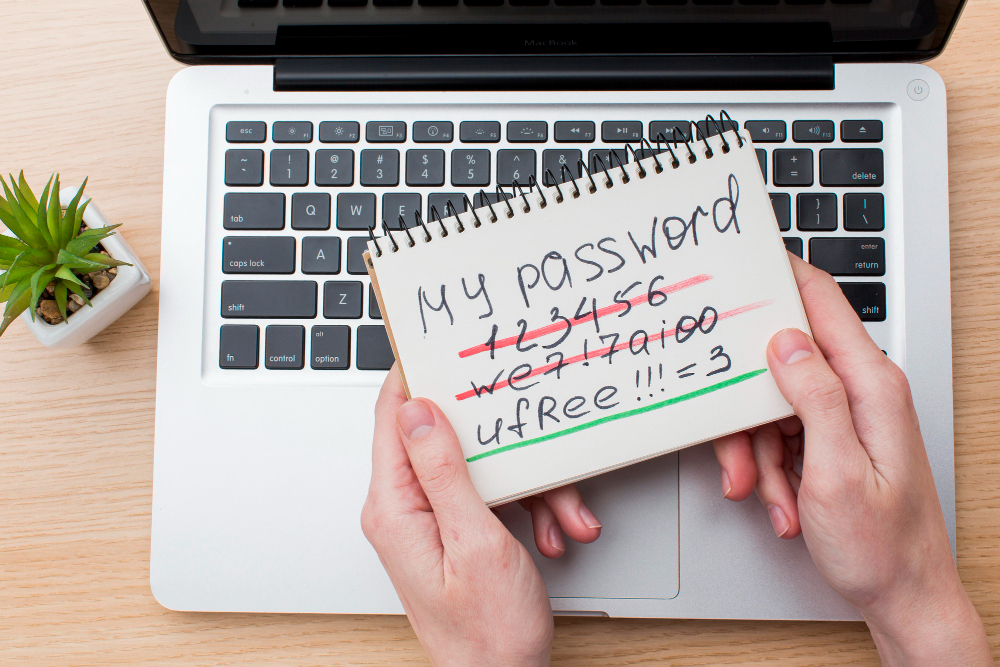 MacBook
esc F1 F2 F3 F4 F5 F6 F7 F8 F10 F11 F12
~ ` ! 1 @ 2 # 3 $ 4 % 5 ^ 6 & + = delete
tab Q W E } ] | \
caps lock A enter return
shift Z shift
fn control alt option
My password
123456
we7!7aioo
ufRee!!!=3